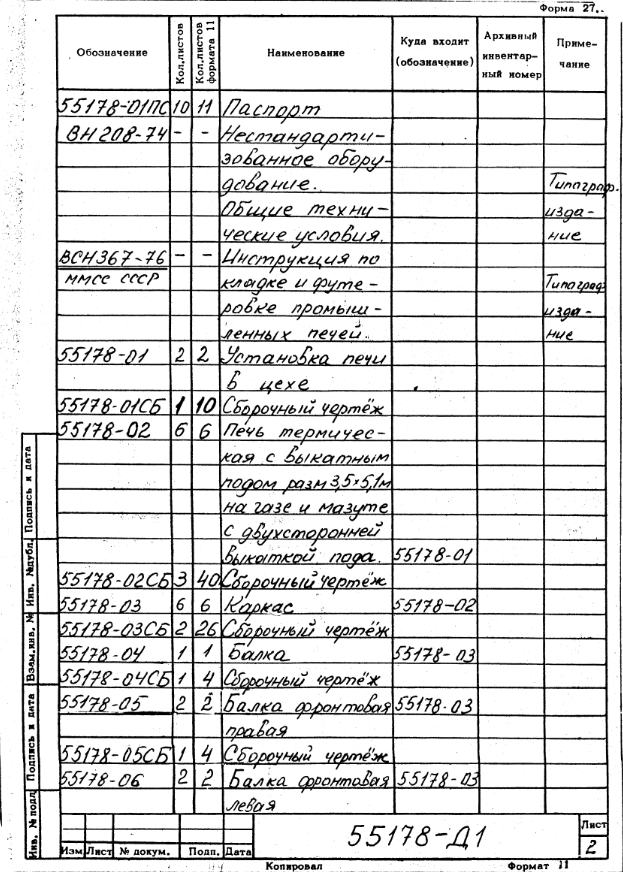 Форма 27.
Обозначение Кол.листов Кол.листов формата 11 Наименование Куда входит (обозначение) Архивный инвентарный номер Примечание
55178-01ПС 10 11 Паспорт
ВН 208-74 - - Нестандарти-
зованное обору-
дование. Типаграф.
Общие техни- изда-
ческие условия. ние
ВСН367-76 - - Инструкция по
ММСС СССР кладке и футе- Типаграф.
ровке промыш- изда-
ленных печей. ние
55178-01 2 2 Установка печи
в цехе
55178-01СБ 1 10 Сборочный чертёж
55178-02 6 6 Печь термичес-
кая с выкатным
подом разм 3,5×5,1м
на газе и мазуте
с двухсторонней
выкаткой пода. 55178-01
55178-02СБ 3 40 Сборочный чертёж
55178-03 6 6 Каркас 55178-02
55178-03СБ 2 26 Сборочный чертёж
55178-04 1 1 Балка 55178-03
55178-04СБ 1 4 Сборочный чертёж
55178-05 2 2 Балка фронтовая 55178-03
правая
55178-05СБ 1 4 Сборочный чертёж
55178-06 2 2 Балка фронтовая 55178-03
левая
Подпись и дата
Инв. №дубл.
Взам.инв. №
Подпись и дата
Инв. № подл
55178-Д1
Лист
2
Изм Лист № докум. Подп. Дата
Копировал Формат 11